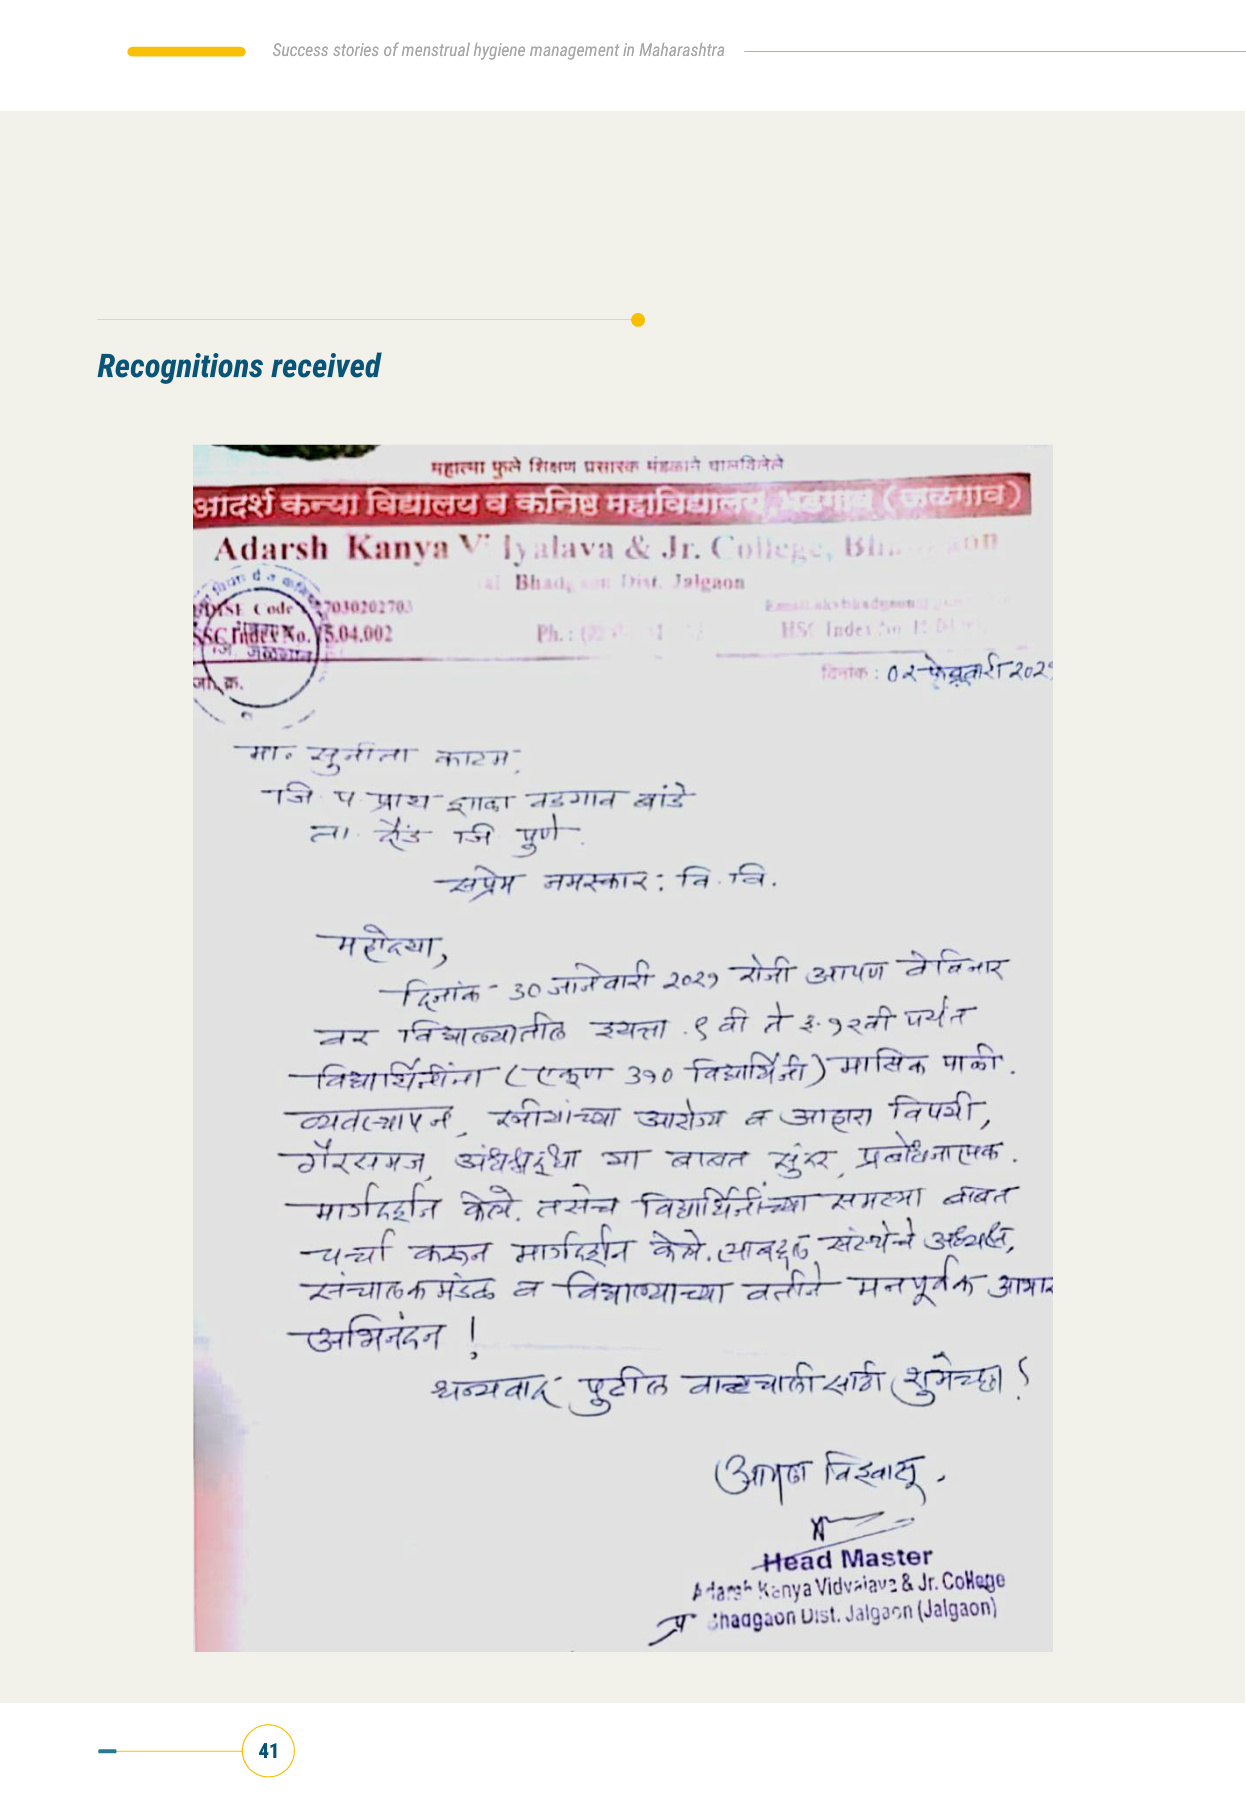 Success stories of menstrual hygiene management in Maharashtra
Recognitions received
महात्मा फुले शिक्षण प्रसारक मंडळाने चालविलेले
आदर्श कन्या विद्यालय व कनिष्ठ महाविद्यालय, भडगाव ( जळगाव )
Adarsh Kanya & Jr. College,
Dist. Jalgaon
Code
SSC Index No. 15.04.002
Ph. :
HSC Index No
जा. क्र.
दिनांक : ०२ फेब्रुवारी
मा. सुनीता काटम,
जि. प. प्राथ शाळा वडगाव बांडे
ता. दौंड जि पुणे.
सप्रेम नमस्कार : वि. वि.
महोदया,
दिनांक - 30 जानेवारी २०२१ रोजी आपण वेबिनार
वर विद्यालयातील इयत्ता ९ वी ते इ. १२वी पर्यंत
विद्यार्थिनींना (एकूण 310 विद्यार्थिनी) मासिक पाळी.
व्यवस्थापन, स्त्रीयांच्या आरोग्य व आहारा विषयी,
गैरसमज, अंधश्रद्धा या बाबत सुंदर, प्रबोधनात्मक.
मार्गदर्शन केले. तसेच विद्यार्थिनींच्या समस्या बाबत
चर्चा करून मार्गदर्शन केले. त्याबद्दल संस्थेचे अध्यक्ष,
संचालक मंडळ व विद्यालयाच्या वतीने मनपूर्वक आभार
अभिनंदन !
धन्यवाद पुढील वाटचाली साठी शुभेच्छा !
आपला विश्वासू.
Head Master
Adarsh Kanya Vidyalaya & Jr. College
Bhadgaon Dist. Jalgaon (Jalgaon)
41